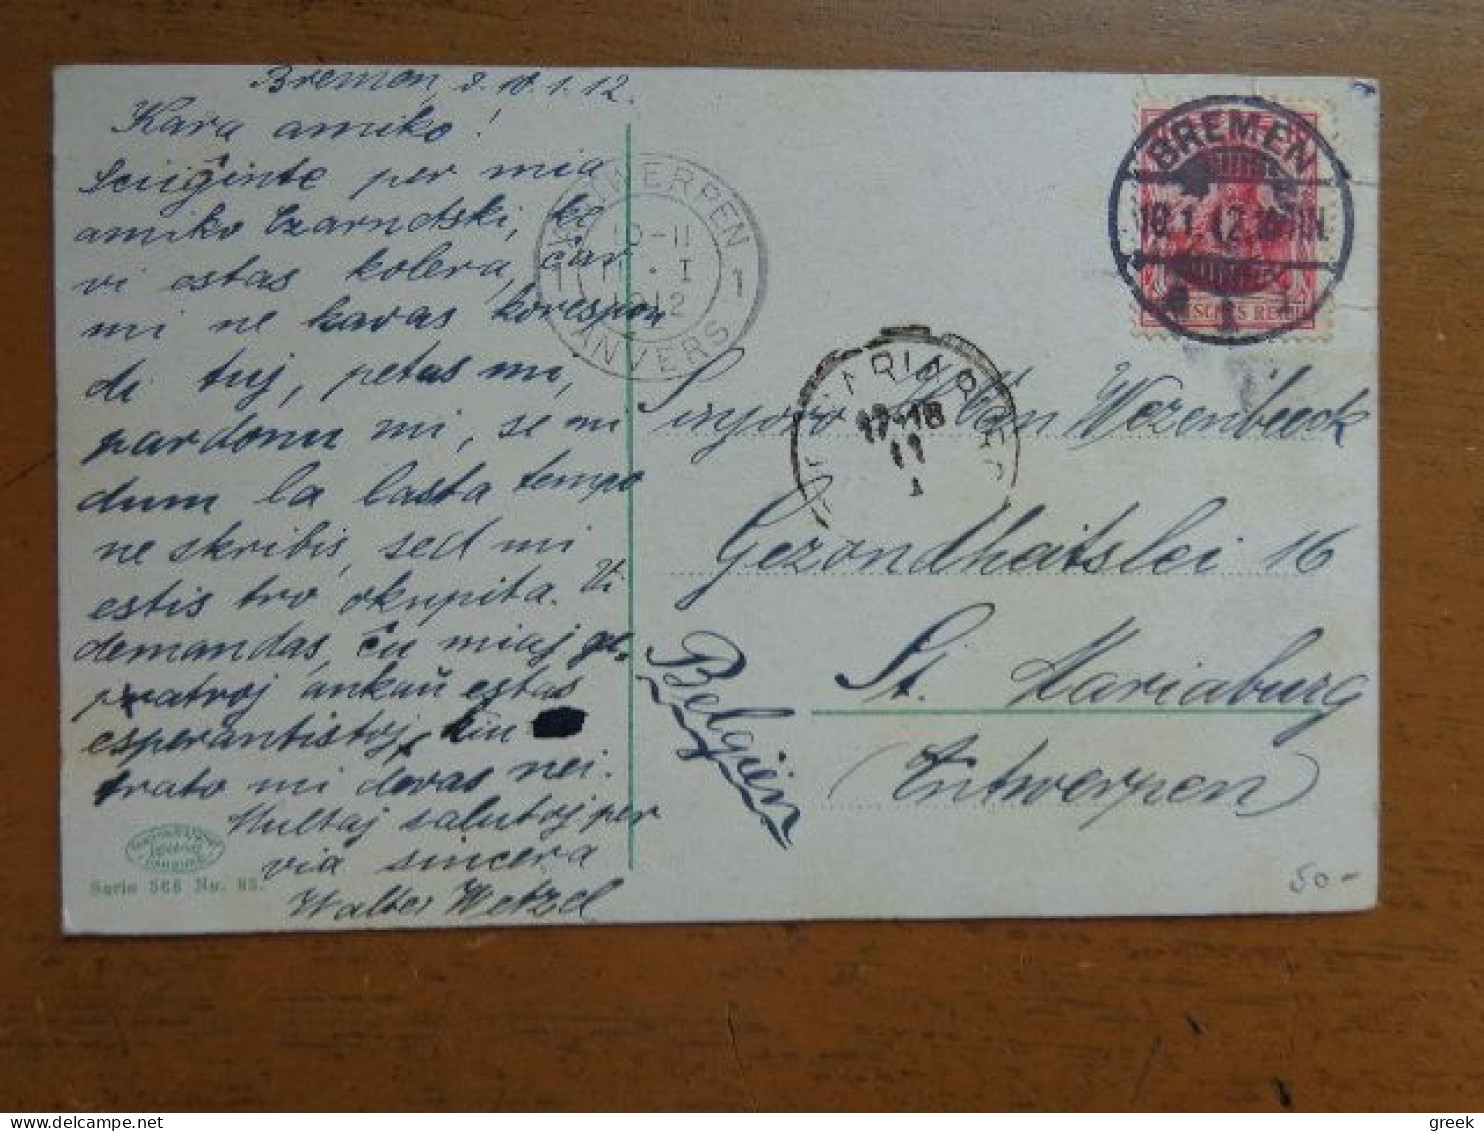 Bremen, d. 10.1.12.
Kara amiko!
Sciiĝinte per mia
amiko Czarnotski, ke
vi estas kolera, ĉar
mi ne havas korespon
di tuj, petas mi,
pardonu mi, se mi
dum la lasta tempo
ne skribis, sed mi
estis tro okupita. Vi
demandas, ĉu miaj ge-
patroj ankaŭ estas
esperantistoj, kun
trato mi devas nei.
Multaj salutoj per
via sincera
Walter Wetzel
Serie 566 No. 93.
ANTWERPEN
10-11
11 · I
1912
1 1
ANVERS
BREMEN
10.1.12.
1
DEUTSCHES REICH
MARIABURG
17-18
11
1
Sinjoro Van Wezenbeeck
Gezondheitslei 16
St. Mariaburg
(Antwerpen)
Belgien
50-
greek